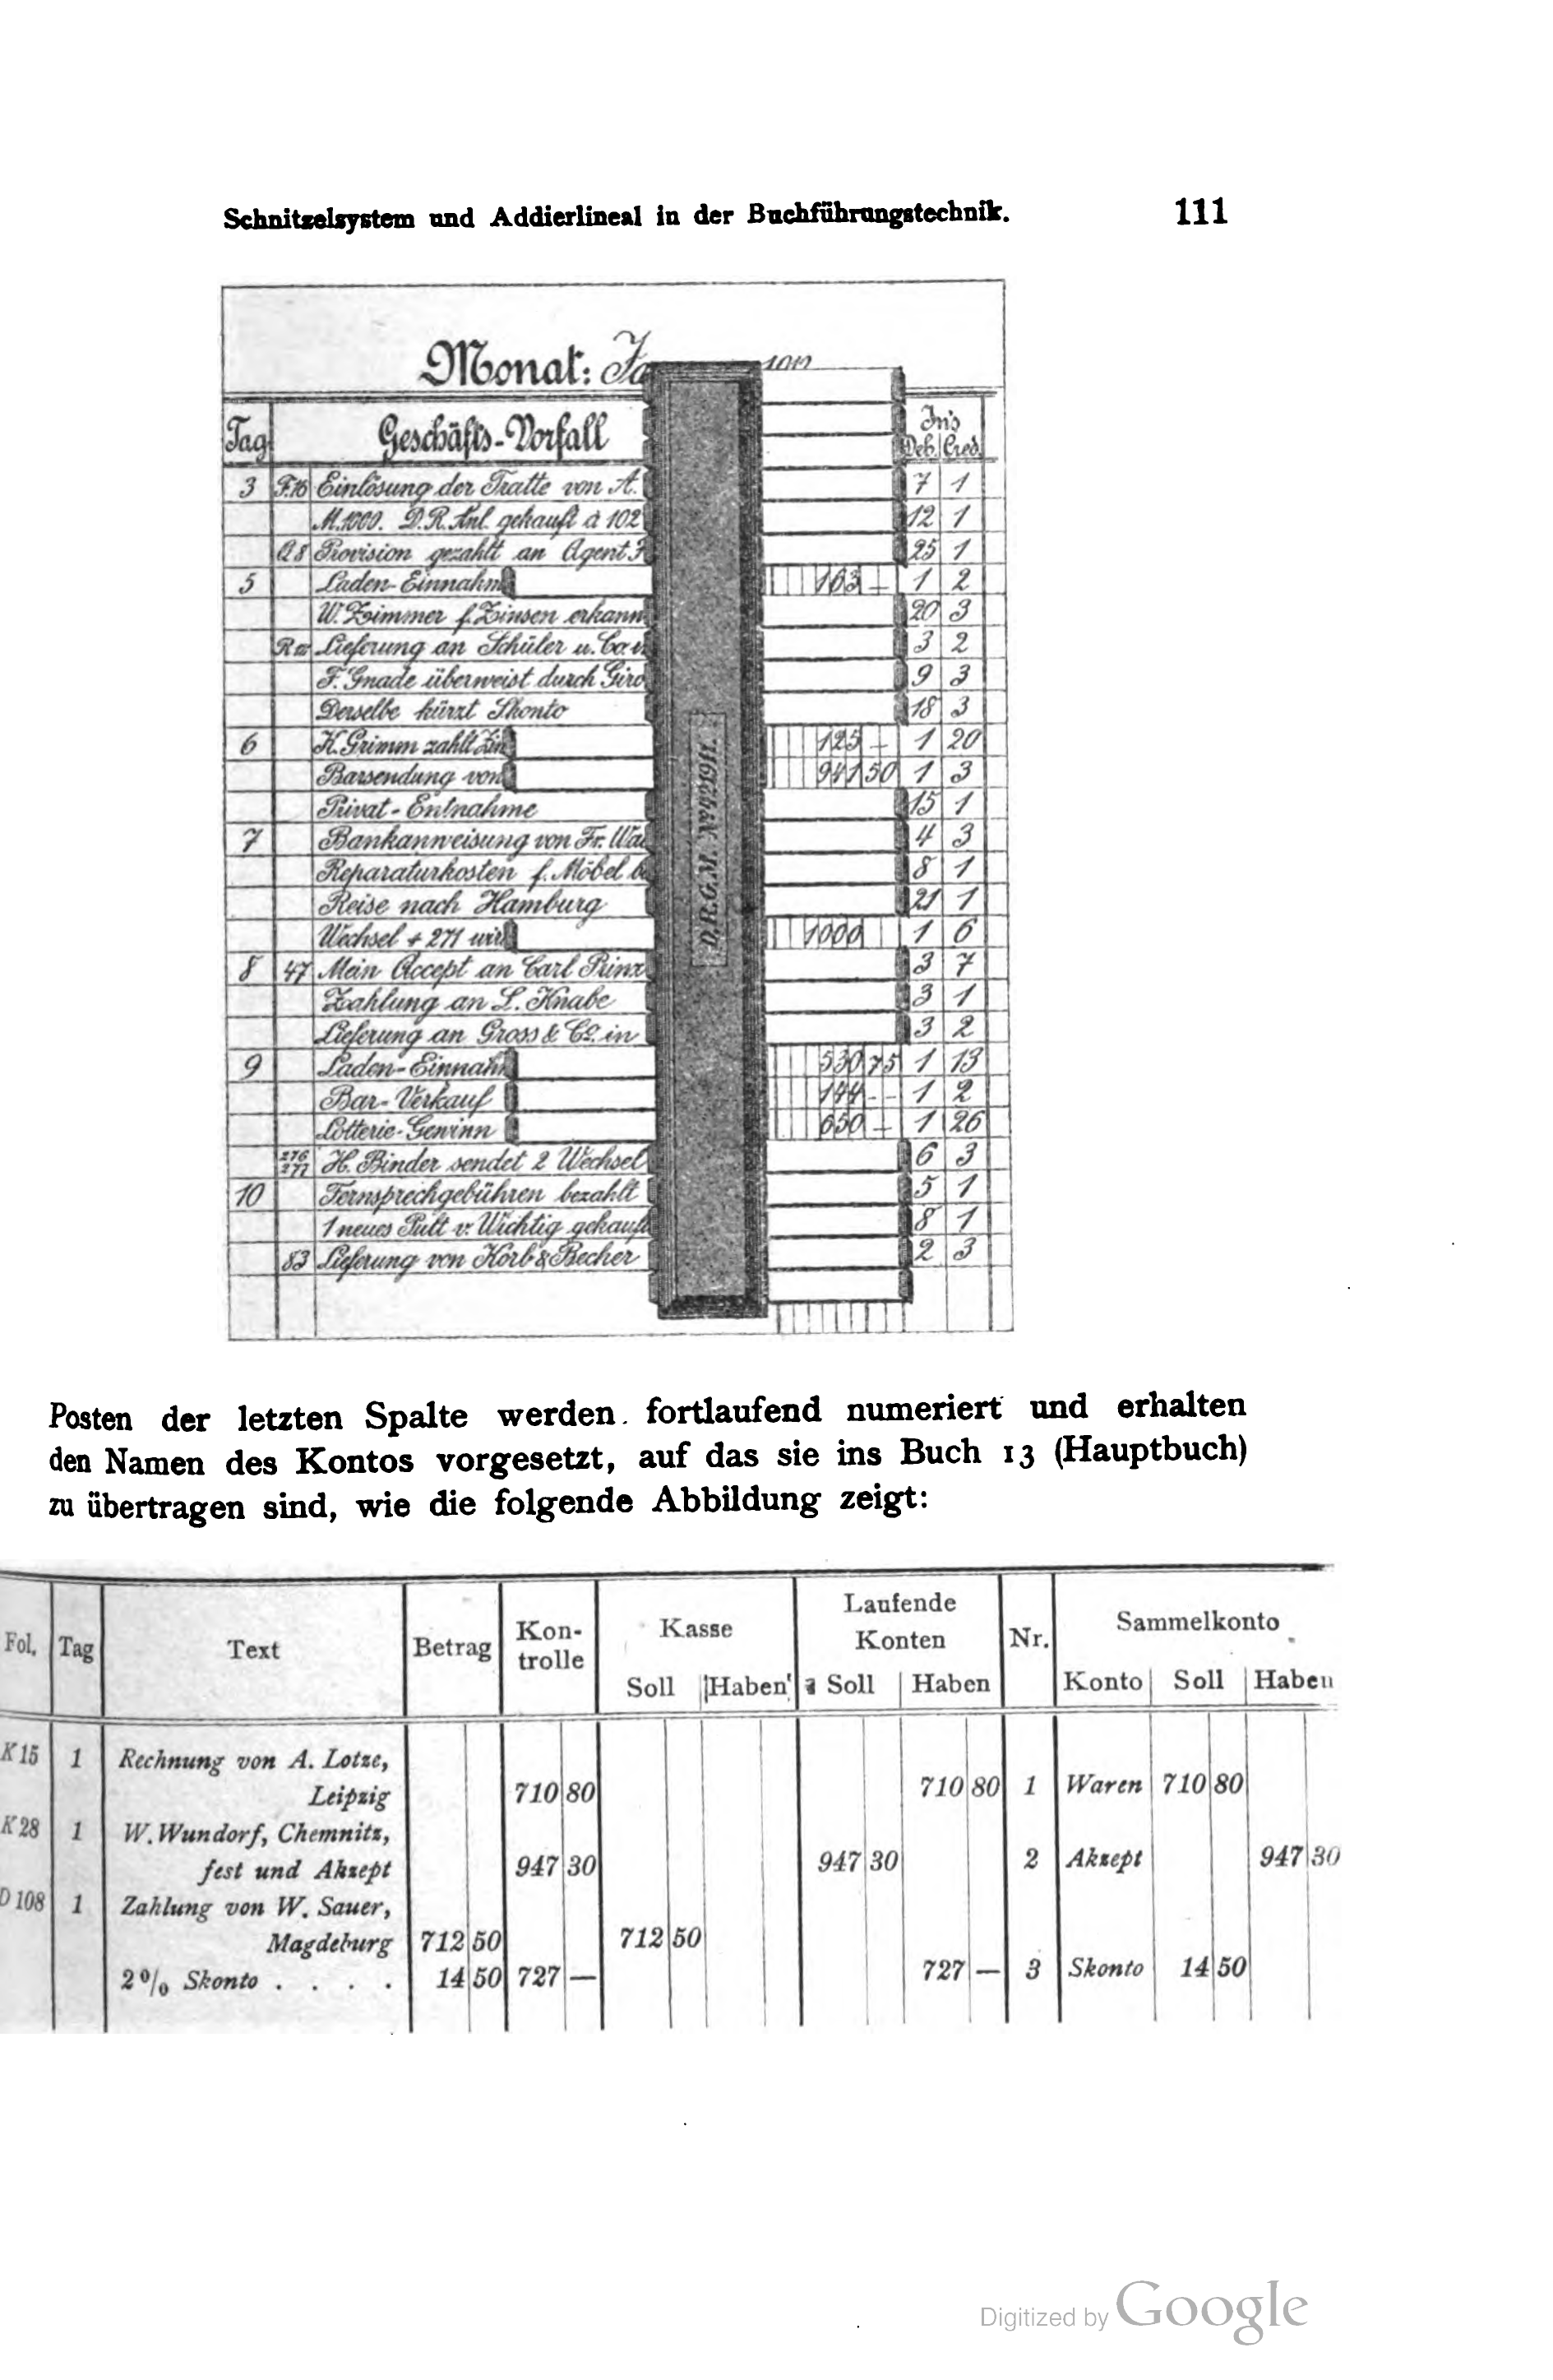 Schnitzelsystem und Addierlineal in der Buchführungstechnik. 111
Monat: Ja
Tag Geschäfts-Vorfall In's
Deb. Cred.
3 F.16 Einlösung der Tratte von A. 7 1
M.1000. D.R.Anl. gekauft à 102 12 1
Q 8 Provision gezahlt an Agent 25 1
5 Laden-Einnahm 163 — 1 2
W. Zimmer f. Zinsen erkann 20 3
Lieferung an Schüler u. Co. 3 2
F. Gnade überweist durch Giro 9 3
Derselbe kürzt Skonto 18 3
6 K. Grimm zahlt Zin 125 — 1 20
Barsendung von 941 50 1 3
Privat-Entnahme 15 1
7 Bankanweisung von Fr. Wa 4 3
Reparaturkosten f. Möbel b 8 1
Reise nach Hamburg 21 1
Wechsel + 271 wird 1000 1 6
8 47 Mein Accept an Carl Prinz 3 7
Zahlung an L. Knabe 3 1
Lieferung an Gross & Co. in 3 2
9 Laden-Einnah 530 75 1 13
Bar-Verkauf 144 — 1 2
Lotterie-Gewinn 650 — 1 26
276
277 H. Binder sendet 2 Wechsel 6 3
10 Fernsprechgebühren bezahlt 5 1
1 neues Pult v. Wichtig gekauft 8 1
83 Lieferung von Korb & Becher 2 3
D.R.G.M. № 421911.
Posten der letzten Spalte werden fortlaufend numeriert und erhalten
den Namen des Kontos vorgesetzt, auf das sie ins Buch 13 (Hauptbuch)
zu übertragen sind, wie die folgende Abbildung zeigt:
Fol. Tag Text Betrag Kon-
trolle Kasse Laufende
Konten Nr. Sammelkonto
Soll Haben Soll Haben Konto Soll Haben
K 15 1 Rechnung von A. Lotze,
Leipzig 710 80 710 80 1 Waren 710 80
K 28 1 W. Wundorf, Chemnitz,
fest und Akzept 947 30 947 30 2 Akzept 947 30
D 108 1 Zahlung von W. Sauer,
Magdeburg 712 50 712 50
2% Skonto . . . . 14 50 727 — 727 — 3 Skonto 14 50
Digitized by Google